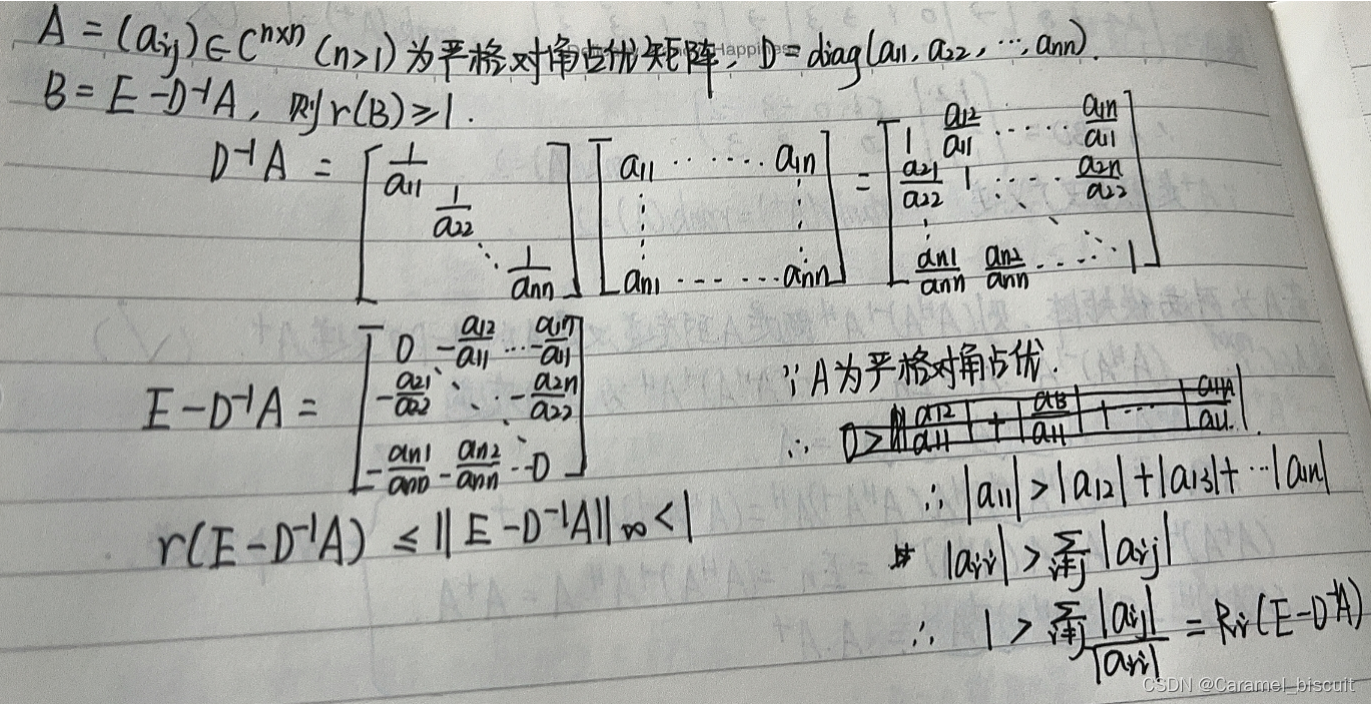 A = (aij) ∈ C^{n×n} (n>1) 为严格对角占优矩阵, D = diag(a11, a22, ···, ann).
B = E - D⁻¹A, 则 r(B) ≥ 1.
D⁻¹A = [ 1/a11 1/a22 ⋱ 1/ann ] [ a11 ······ a1n ⋮ ⋮ an1 ······ ann ] = [ 1 a12/a11 ······ a1n/a11
a21/a22 1 ···· a2n/a22
⋮ ⋱
an1/ann an2/ann ····· 1 ]
E - D⁻¹A = [ 0 -a12/a11 ··· -a1n/a11
-a21/a22 ⋱ -a2n/a22
-an1/ann -an2/ann ·· 0 ]
∵ A 为严格对角占优.
∴
∴ |a11| > |a12| + |a13| + ··· |a1n|
r(E - D⁻¹A) ≤ ‖E - D⁻¹A‖∞ < 1
|aii| > Σ_{i≠j} |aij|
∴ 1 > Σ_{i≠j} |aij|/|aii| = Ri(E - D⁻¹A)
CSDN @Caramel_biscuit